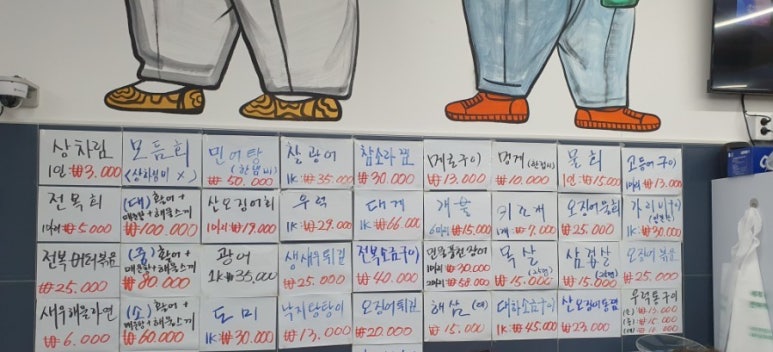 상차림
1인:₩3.000
모듬회
<상차림비 X>
민어탕
(한냄비)
₩50.000
찰광어
1K:₩35.000
참소라찜
₩30.000
메로구이
₩13.000
멍게(한접시)
₩10.000
물회
1인:₩15.000
고등어구이
1마리₩13.000
전복회
1마리₩5.000
(대)황어+
매운탕+해물스끼
₩100.000
산오징어회
1마리₩19.000
우럭
1K:₩29.000
대게
1K:₩66.000
개불
6마리₩15.000
키조개
1개₩7.000
오징어물회
₩25.000
가리비구이
1K:₩30.000
전복버터볶음
₩25.000
(중)황어+
매운탕+해물스끼
₩80.000
광어
1K₩35,000
생새우튀김
₩25.000
전복소금구이
₩40.000
민물붕전장어
1마리₩30.000
2마리₩58.000
목살
₩15.000
삼겹살
₩15.000
오징어볶음
₩25.000
새우해물라면
₩6.000
(소)황어+
매운탕+해물스끼
₩60.000
도미
1K:₩30.000
낙지탕탕이
₩13.000
오징어튀김
₩20.000
해삼
₩15.000
대하소금구이
1K:₩45.000
산오징어통찜
₩23.000
우럭통구이